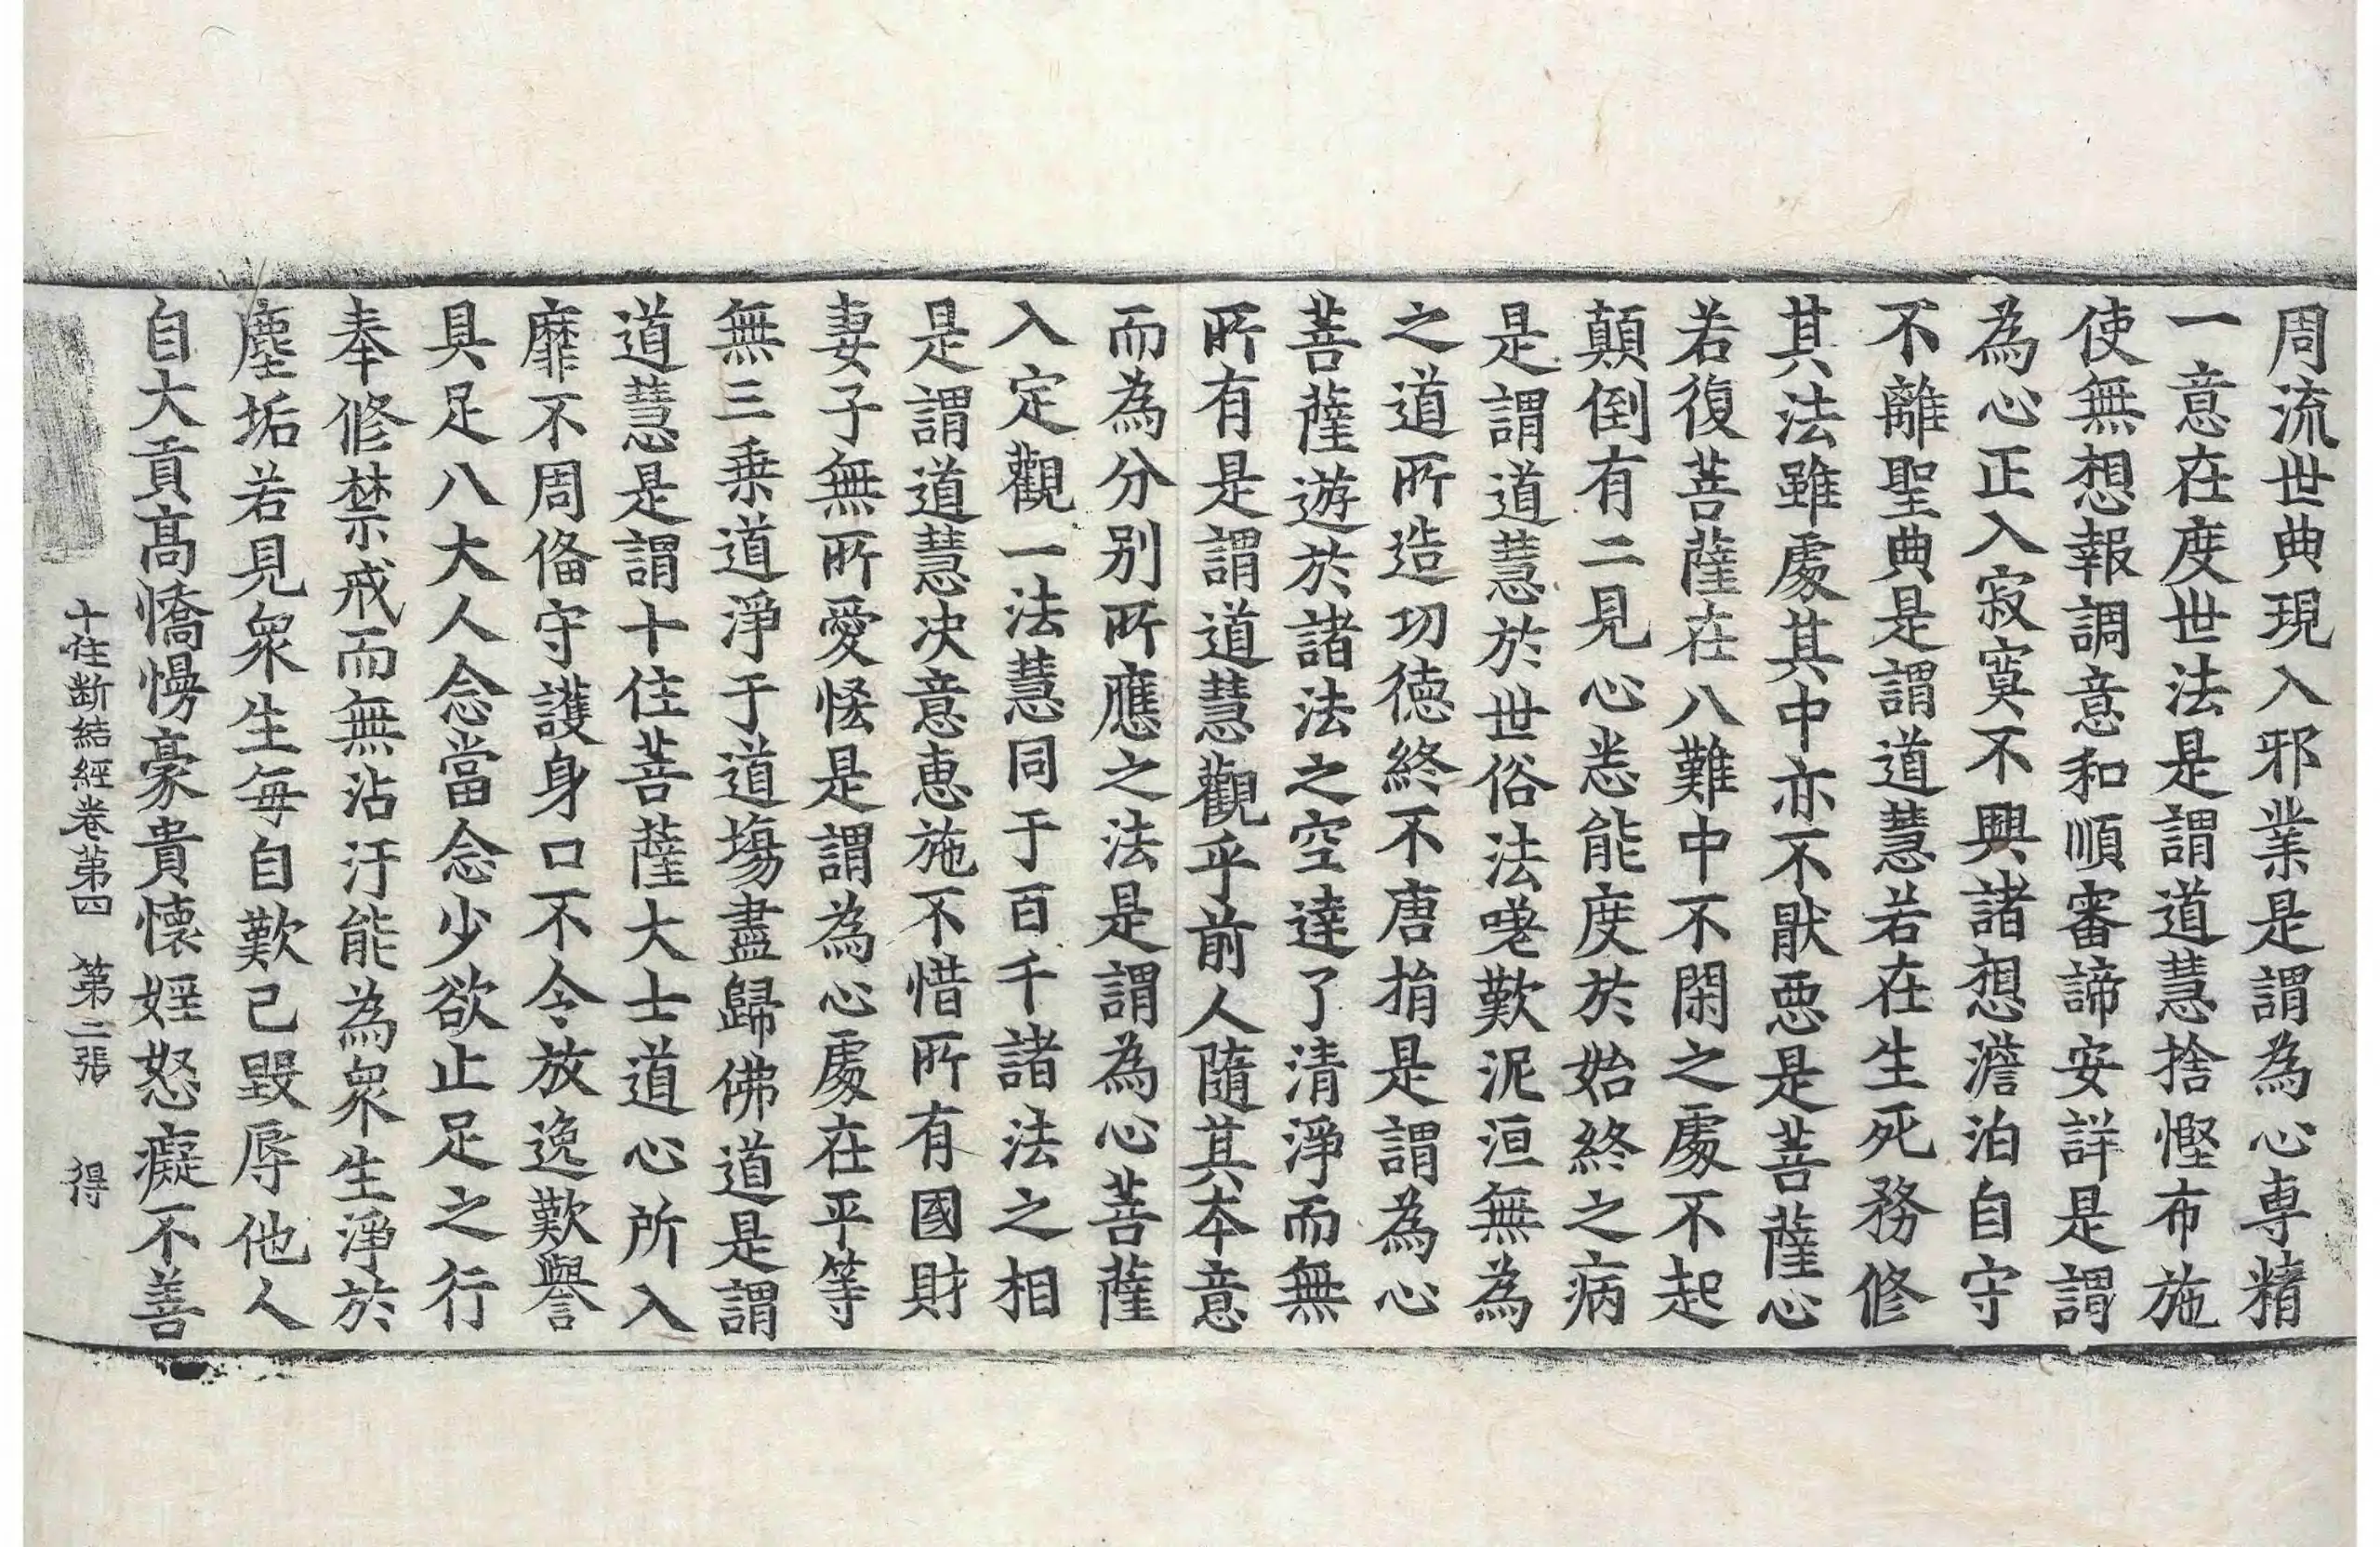 周流世典現入邪業是謂為心專精
一意在度世法是謂道慧捨慳布施
使無想報調意和順審諦安詳是謂
為心正入寂寞不興諸想澹泊自守
不離聖典是謂道慧若在生死務修
其法雖處其中亦不猒惡是菩薩心
若復菩薩在八難中不閑之處不起
顛倒有二見心悉能度於始終之病
是謂道慧於世俗法嗟歎泥洹無為
之道所造功德終不唐捐是謂為心
菩薩遊於諸法之空達了清淨而無
所有是謂道慧觀乎前人隨其本意
而為分別所應之法是謂為心菩薩
入定觀一法慧同于百千諸法之相
是謂道慧決意惠施不惜所有國財
妻子無所愛恡是謂為心處在平等
無三乗道淨于道塲盡歸佛道是謂
道慧是謂十住菩薩大士道心所入
靡不周俻守護身口不令放逸歎譽
具足八大人念當念少欲止足之行
奉修禁戒而無沾汙能為衆生淨於
塵垢若見衆生每自歎己毀辱他人
自大貢髙憍慢豪貴懷婬怒癡不善
十住斷結經卷第四　第二張　得